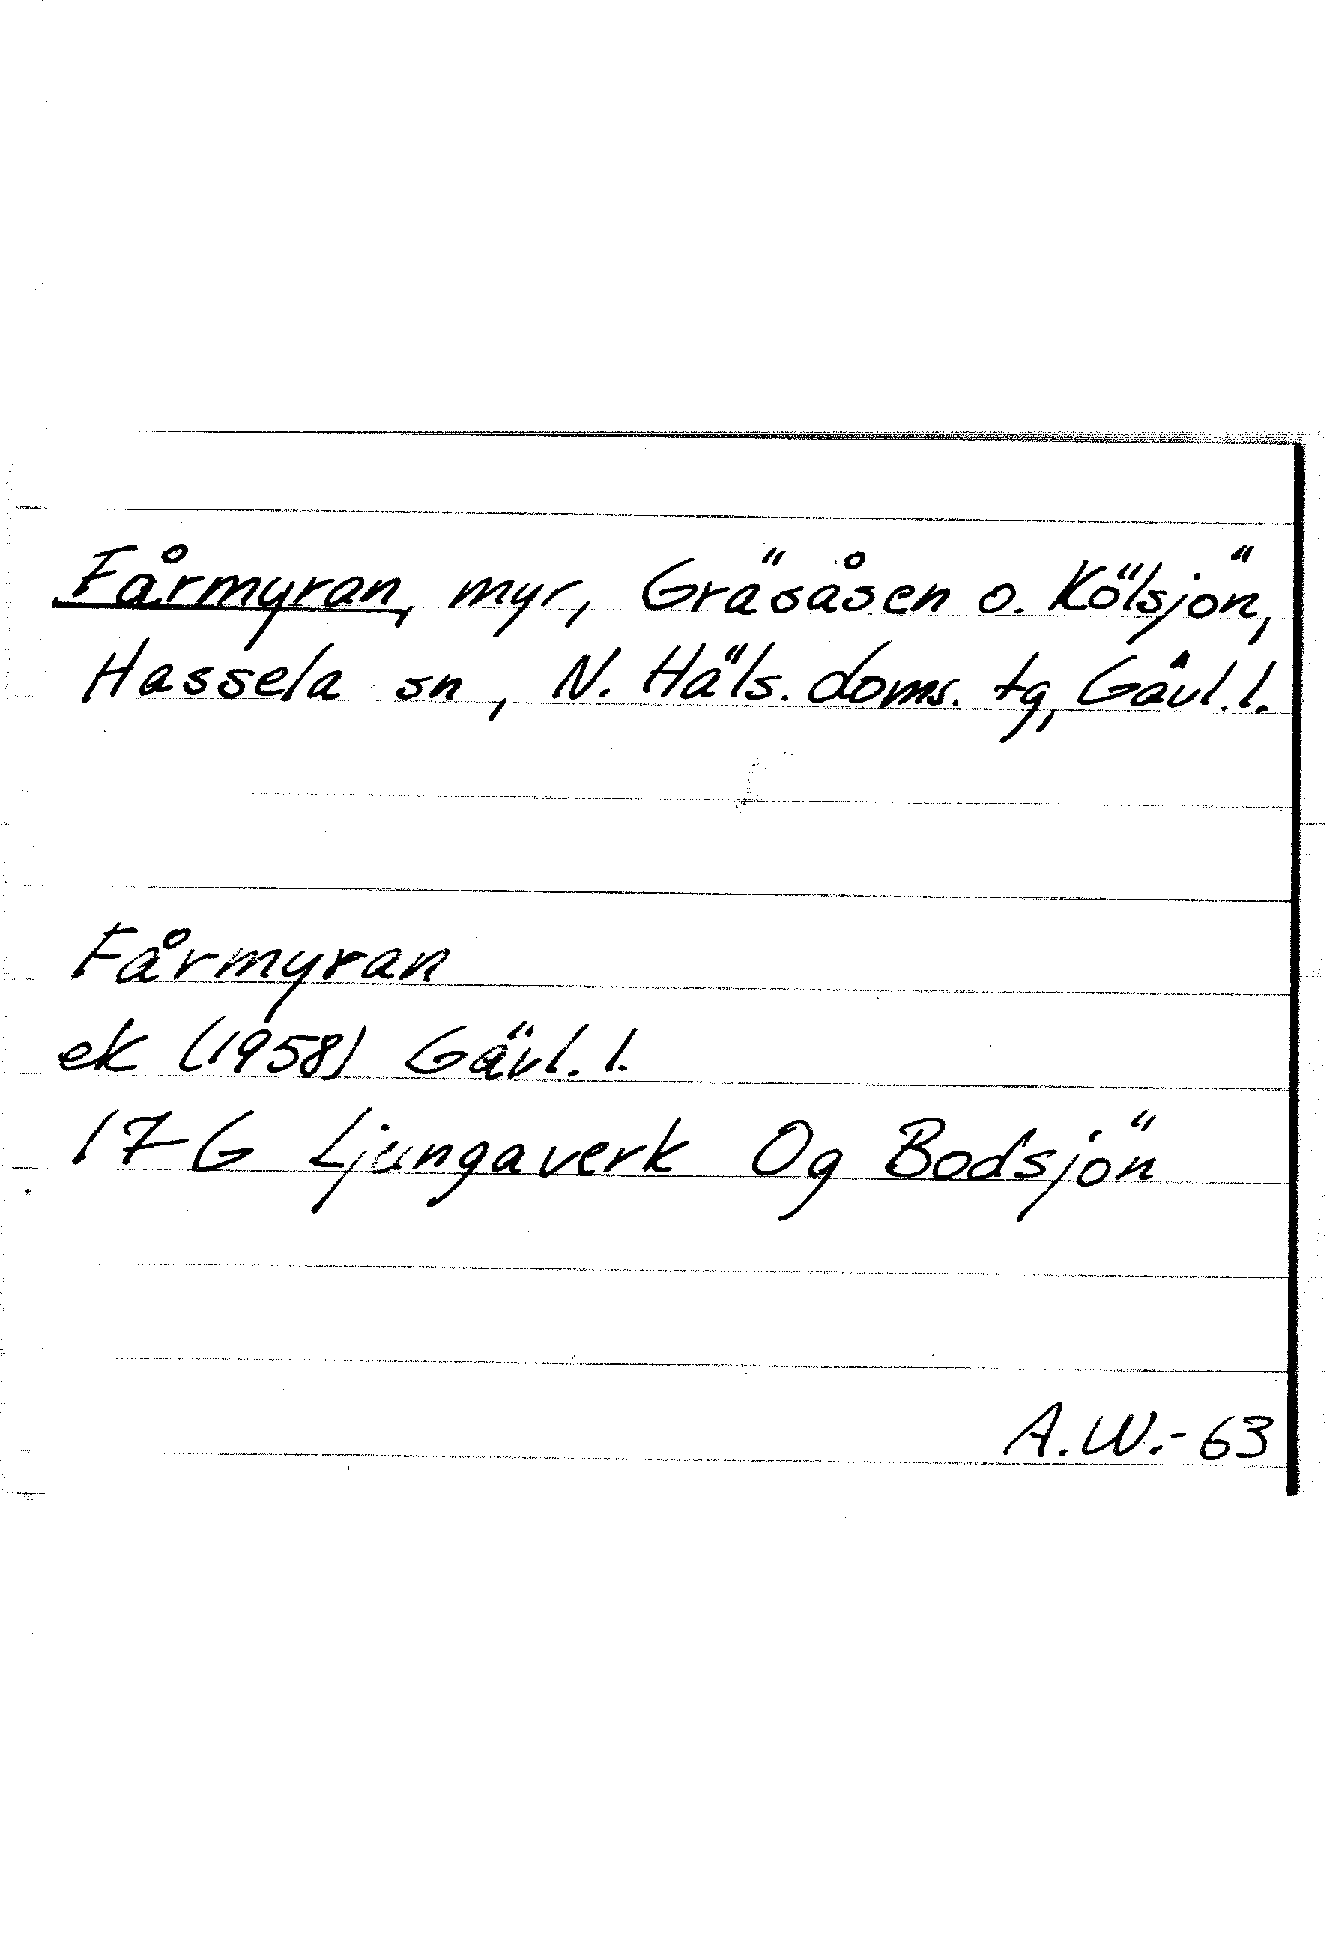 Fårmyran, myr, Gräsåsen o. Kölsjön,
Hassela sn, N. Häls. doms. tg, Gävl. l.
Fårmyran
ek (1958) Gävl. l.
17 G Ljungaverk Og Bodsjön
A.W.-63